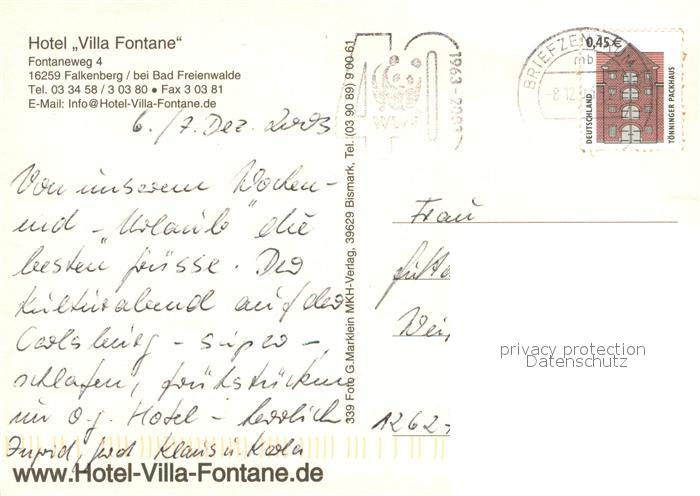 Hotel „Villa Fontane“
Fontaneweg 4
16259 Falkenberg / bei Bad Freienwalde
Tel. 03 34 58 / 3 03 80 • Fax 3 03 81
E-Mail: Info@Hotel-Villa-Fontane.de
6./7. Dez. 2003
Von unserem Wochen-
end - „Urlaub" die
besten Grüsse. Der
Kulturabend auf der
Carlsburg - super -,
schlafen, frühstücken
im o.g. Hotel - herrlich
Klaus u. Karla
www.Hotel-Villa-Fontane.de
339 Foto G.Marklein MKH-Verlag, 39629 Bismark, Tel. (03 90 89) 9 00 61
40
WWF
1963 - 2003
BRIEFZEN
mb
-8.12.
0,45 €
DEUTSCHLAND
TÖNNINGER PACKHAUS
Frau
1262
privacy protection
Datenschutz